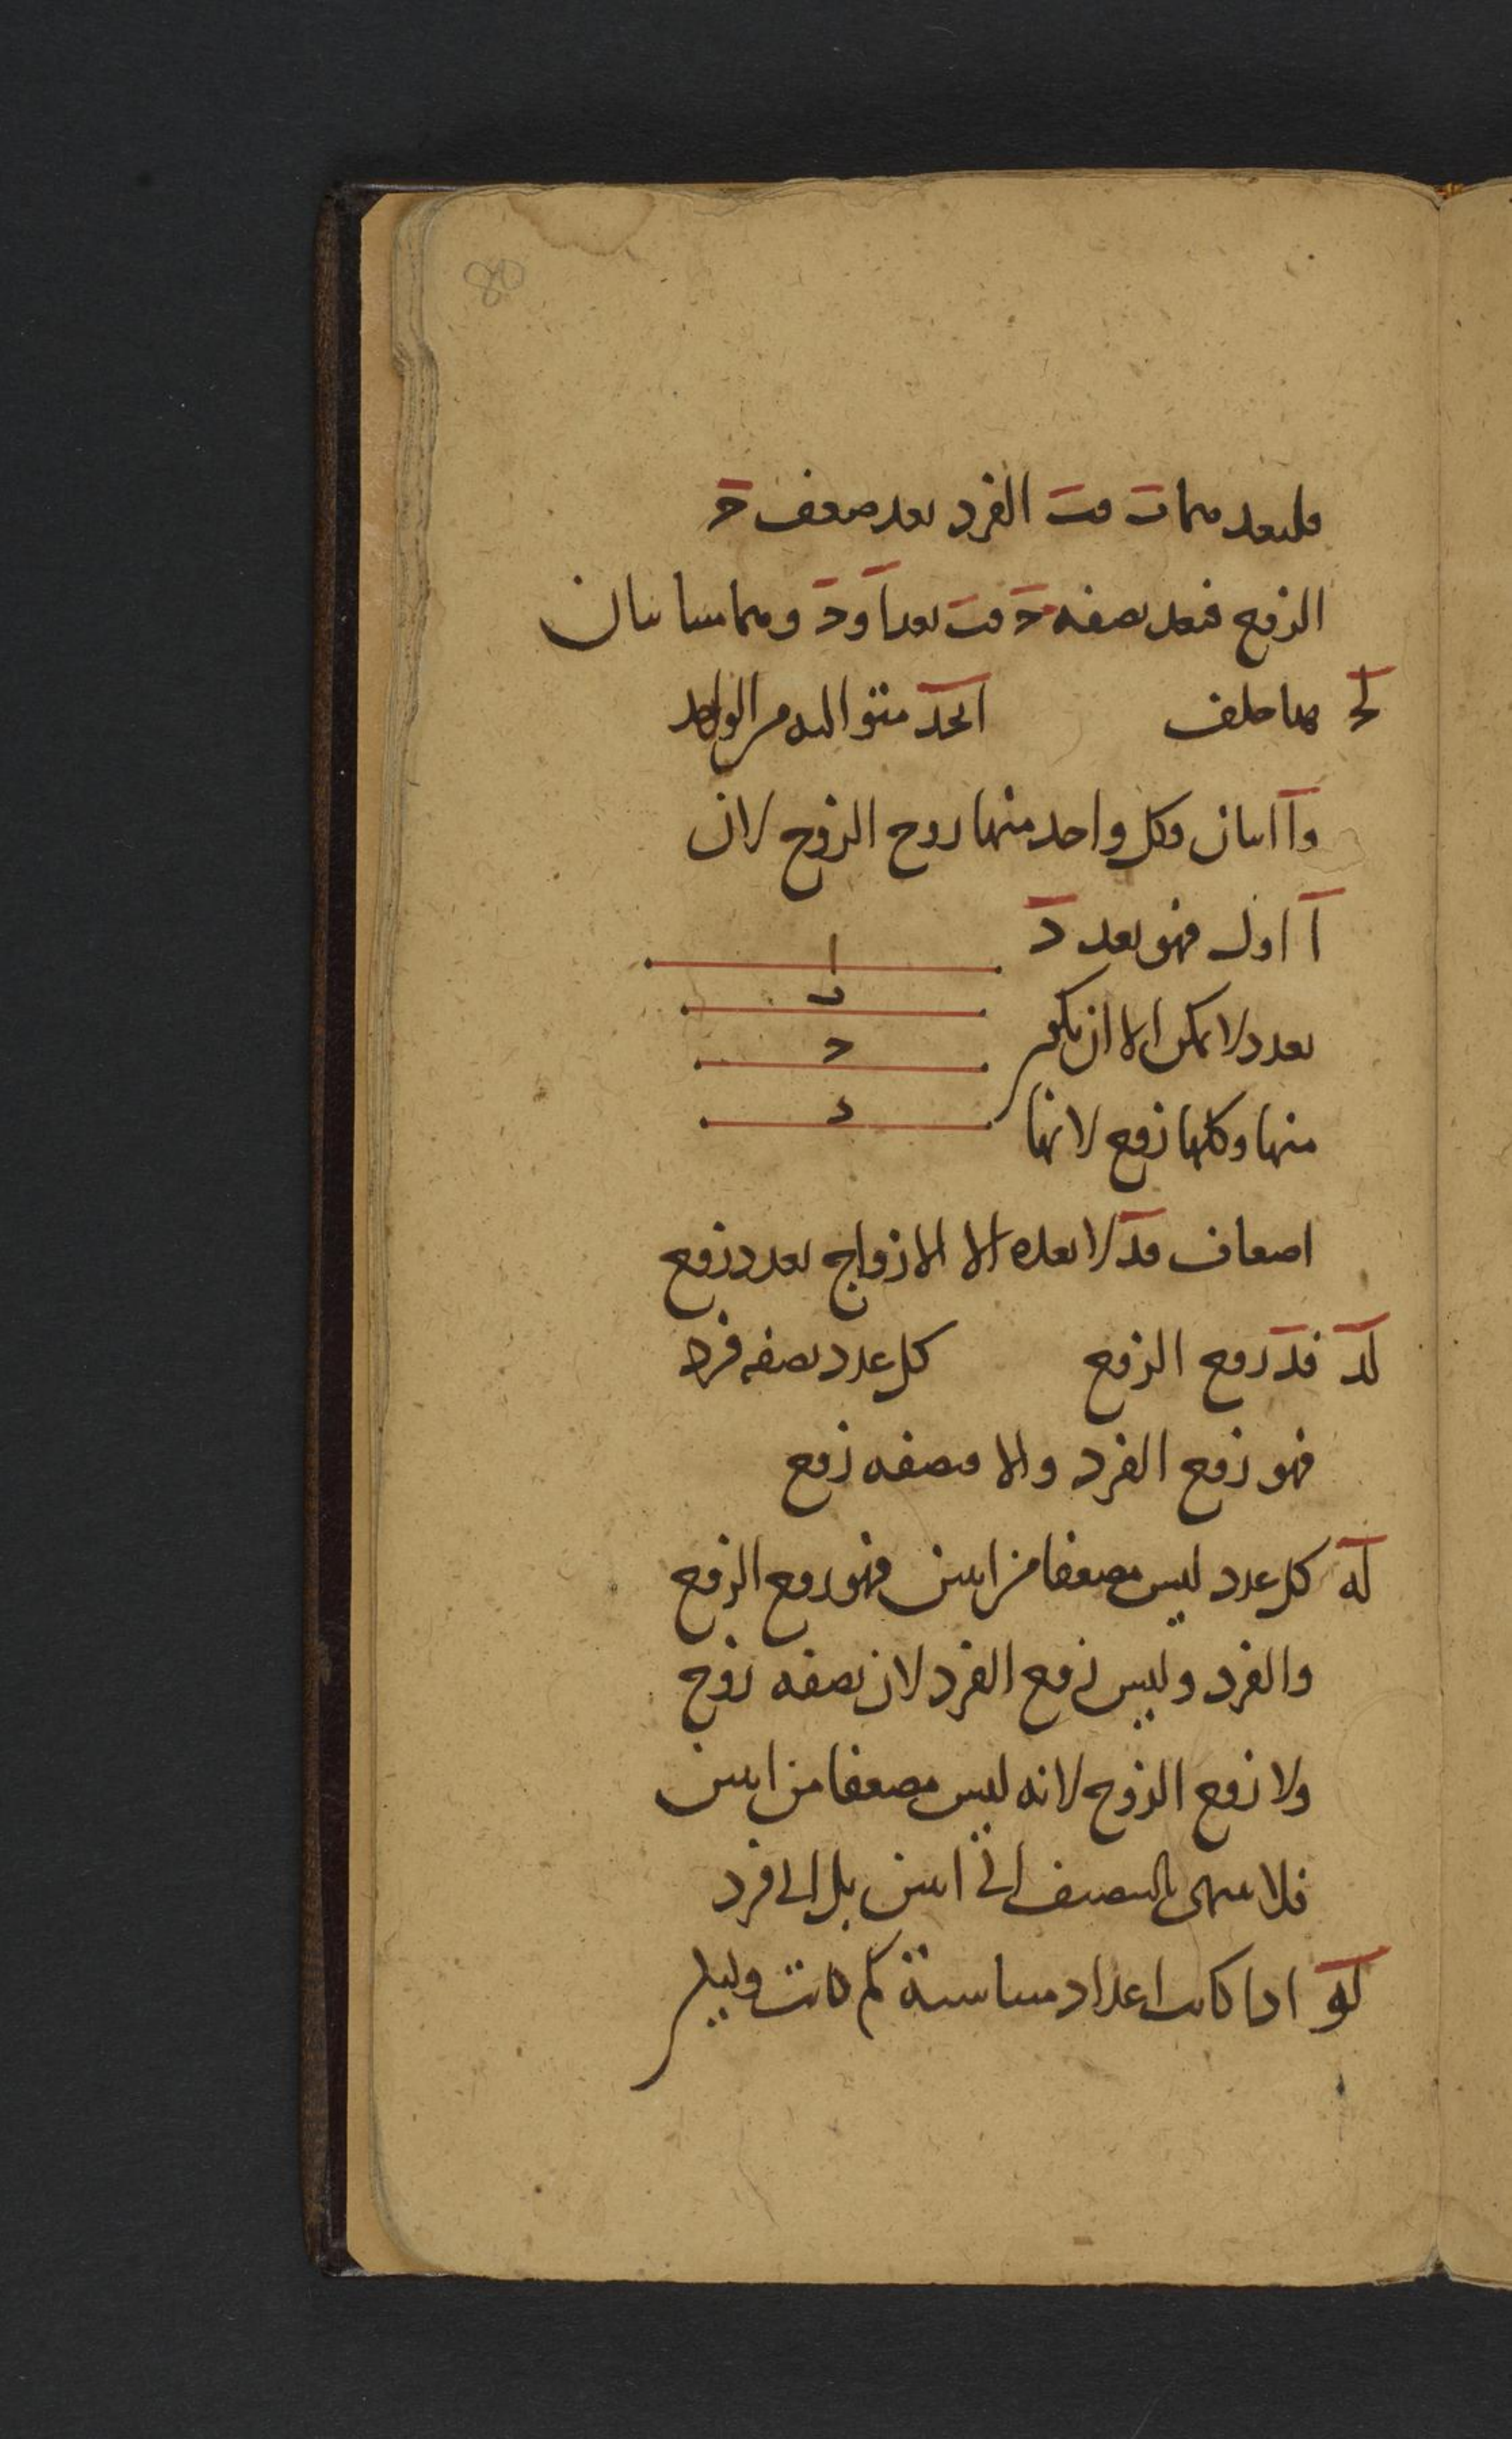 80
فليعد هما بَ فبَ الفرد يعد ضعف جَ
الزوج فيعد نصفه جَ فبَ يعد اَ و جَ وهما متباينان
لج هذا خلف ابجد متوالية من الواحد
واَ اثنان وكل واحد منها زوج الزوج لان
اَ اول فهو يعد دَ
بعدد لا يمكن الا ان يكون
منها وكلها زوج لانها
ا
ب
ج
د
اضعاف فدَ لا يعده الا الازواج بعدد زوج
لد فدَ زوج الزوج كل عدد نصفه فرد
فهو زوج الفرد والا فنصفه زوج
له كل عدد ليس مضعفا من اثنين فهو زوج الزوج
والفرد وليس زوج الفرد لان نصفه زوج
ولا زوج الزوج لانه ليس مضعفا من اثنين
فلا ينتهى بالتنصيف الى اثنين بل الى فرد
لو اذا كانت اعداد متناسبة كم كانت وليكن